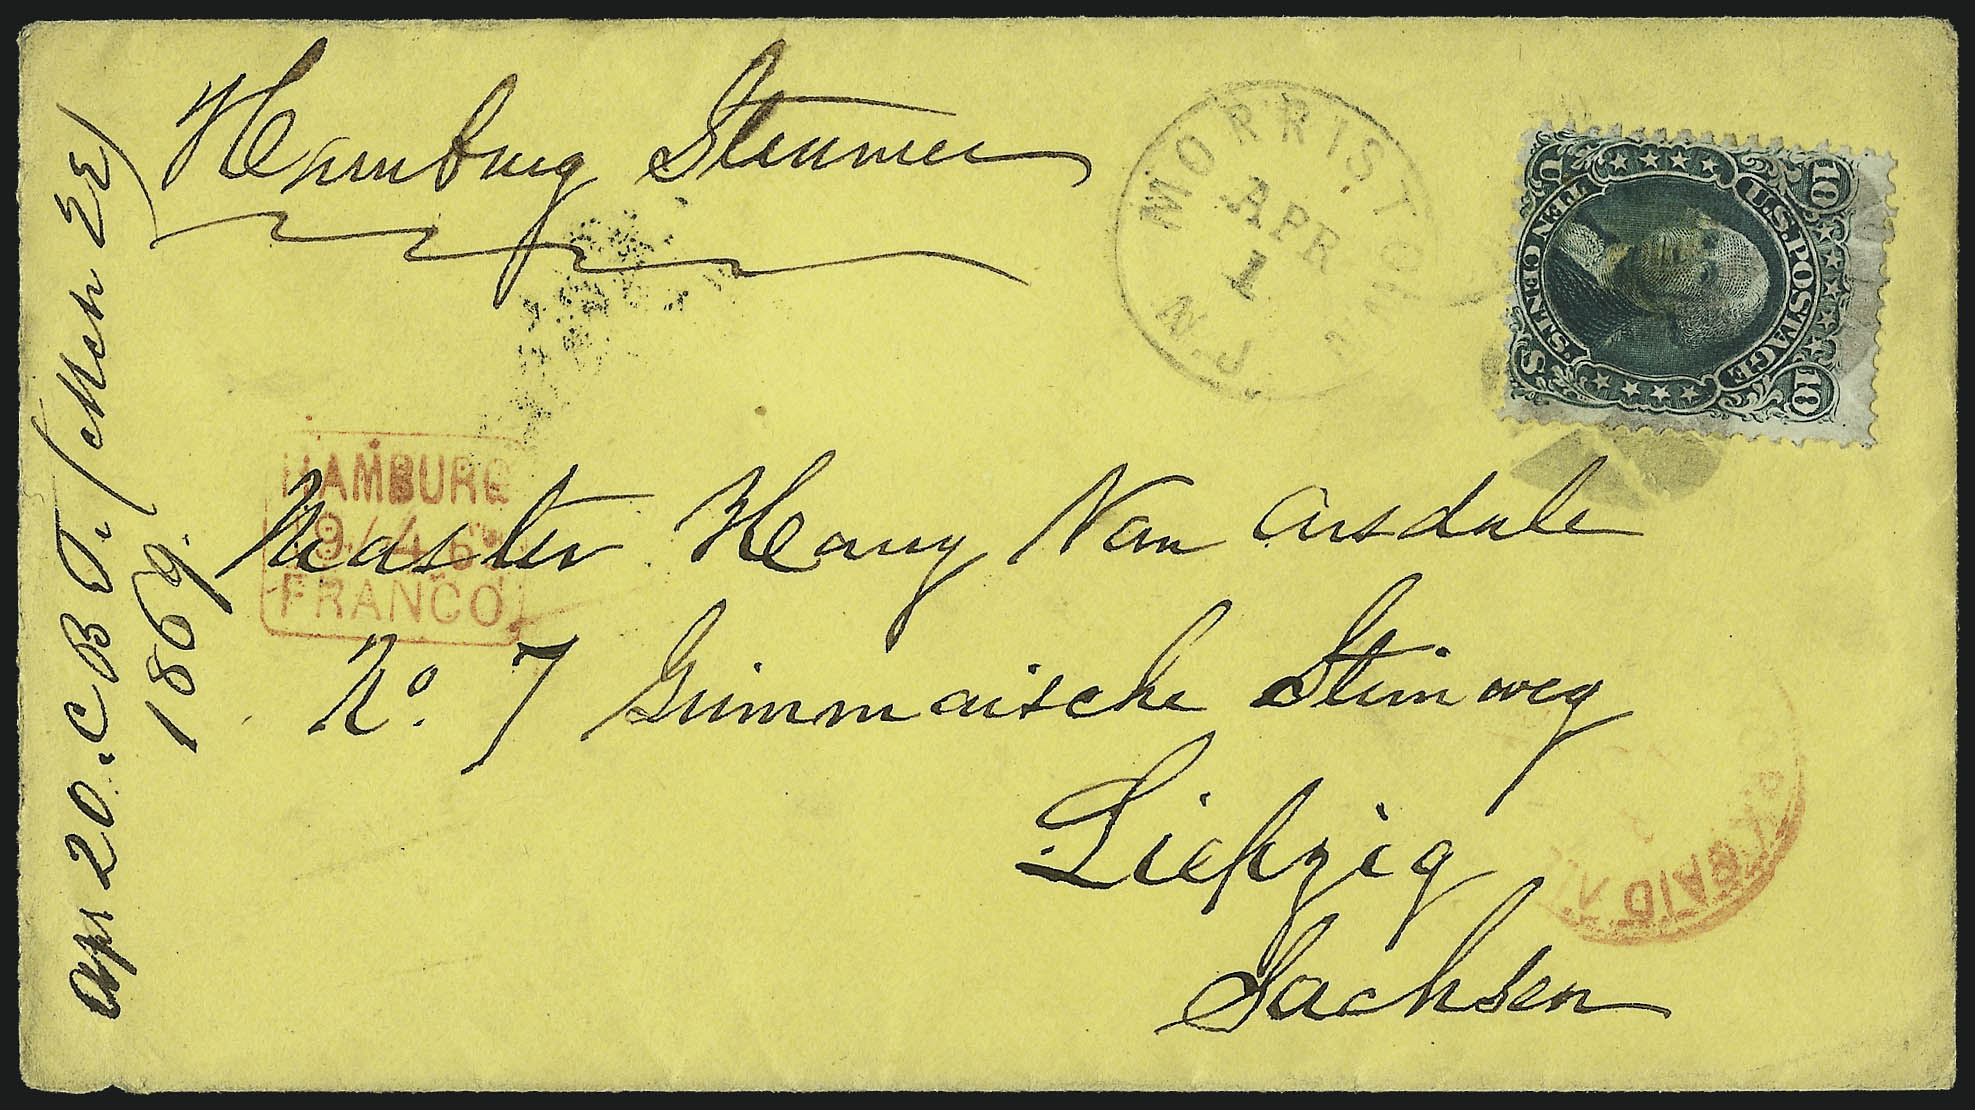 Hamburg Steamer
MORRISTOWN
APR
1
N.J.
U.S. POSTAGE
TEN CENTS
U
S
10
10
HAMBURG
19/4 69
FRANCO
Master Harry Van Arsdale
No. 7 Grimmaische Steinweg
Liepzig
Sachsen
PAID ALL
Apr 20. C B T. (Mch 22)
1869.